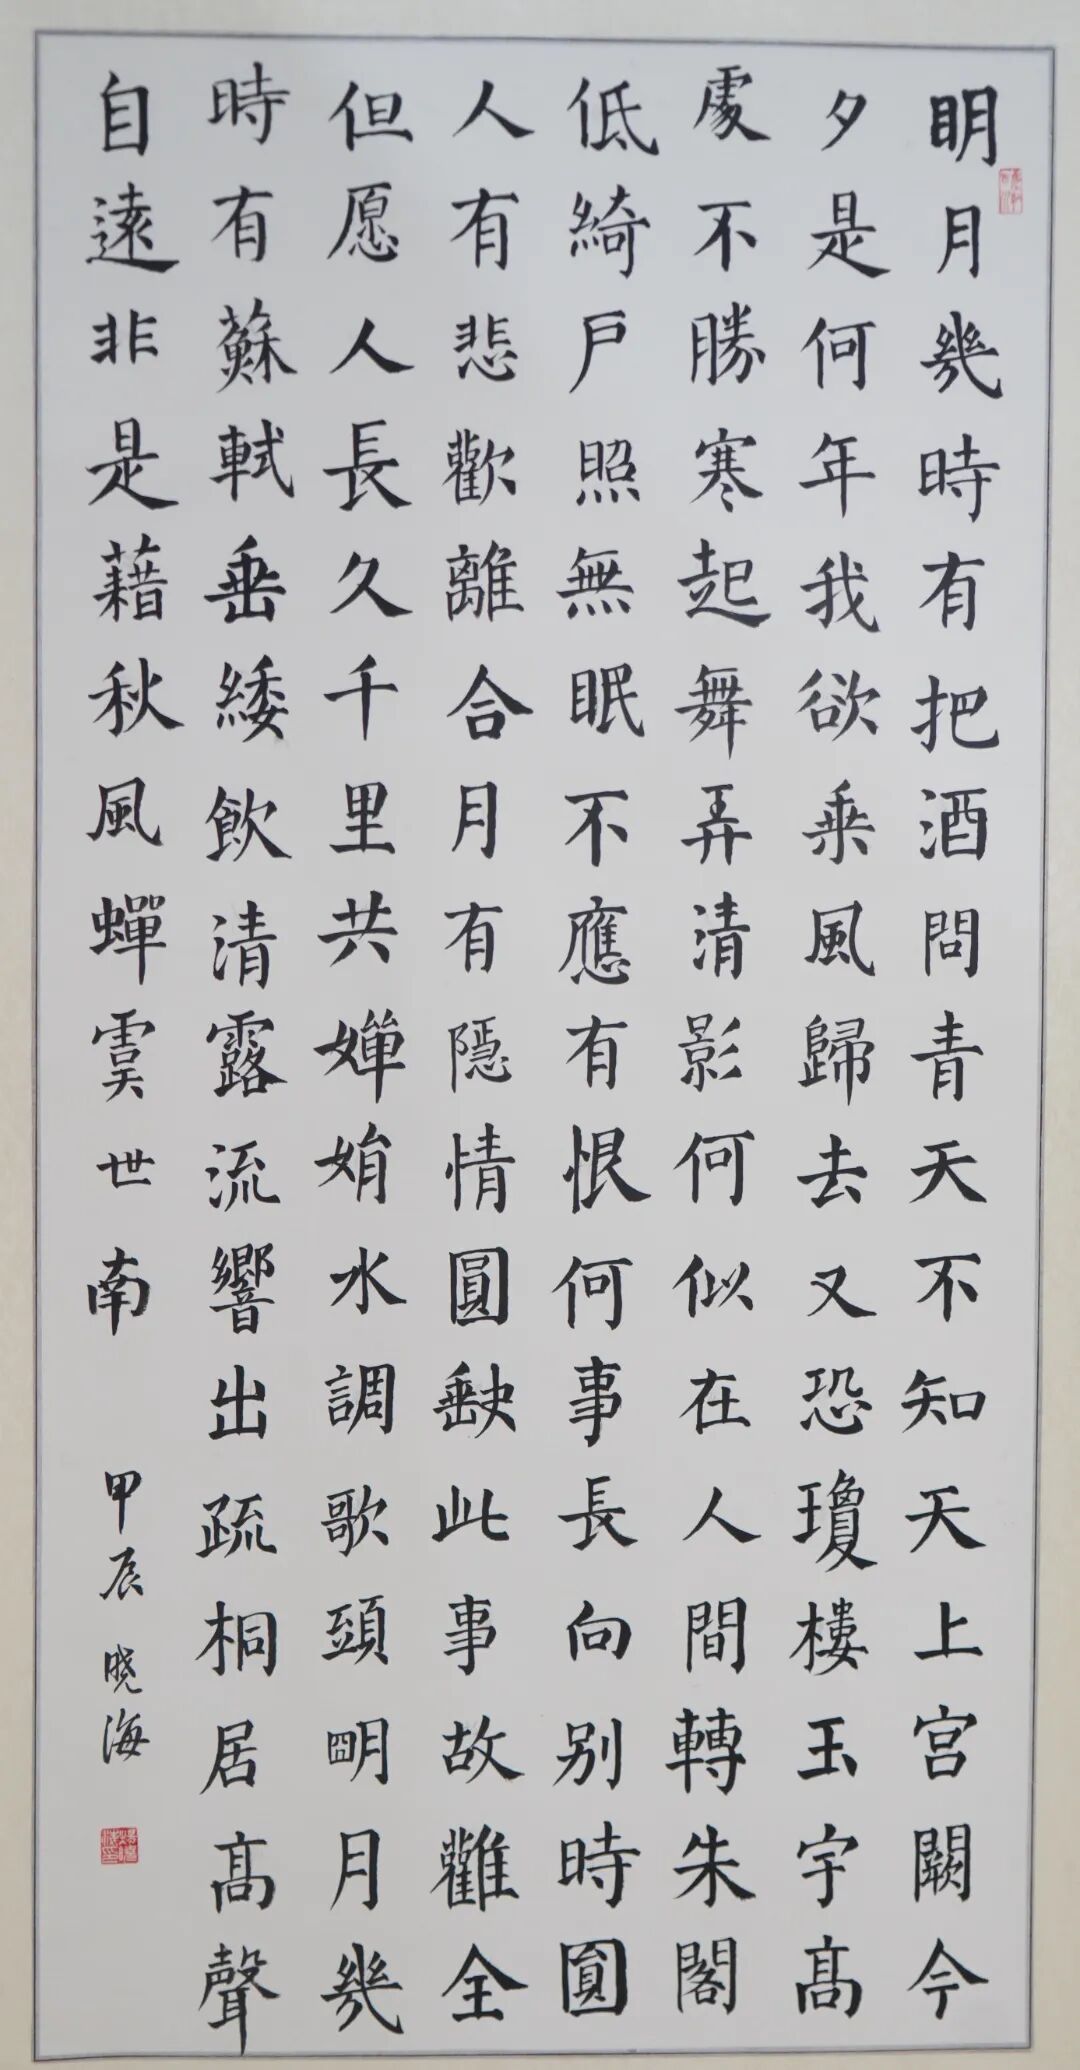 明月幾時有把酒問青天不知天上宮闕今
夕是何年我欲乘風歸去又恐瓊樓玉宇髙
處不勝寒起舞弄清影何似在人間轉朱閣
低綺户照無眠不應有恨何事長向别時圓
人有悲歡離合月有隱情圓缺此事故難全
但愿人長久千里共嬋娟水調歌頭明月幾
時有蘇軾垂緌飲清露流響出疏桐居髙聲
自遠非是藉秋風蟬虞世南
甲辰 晓海